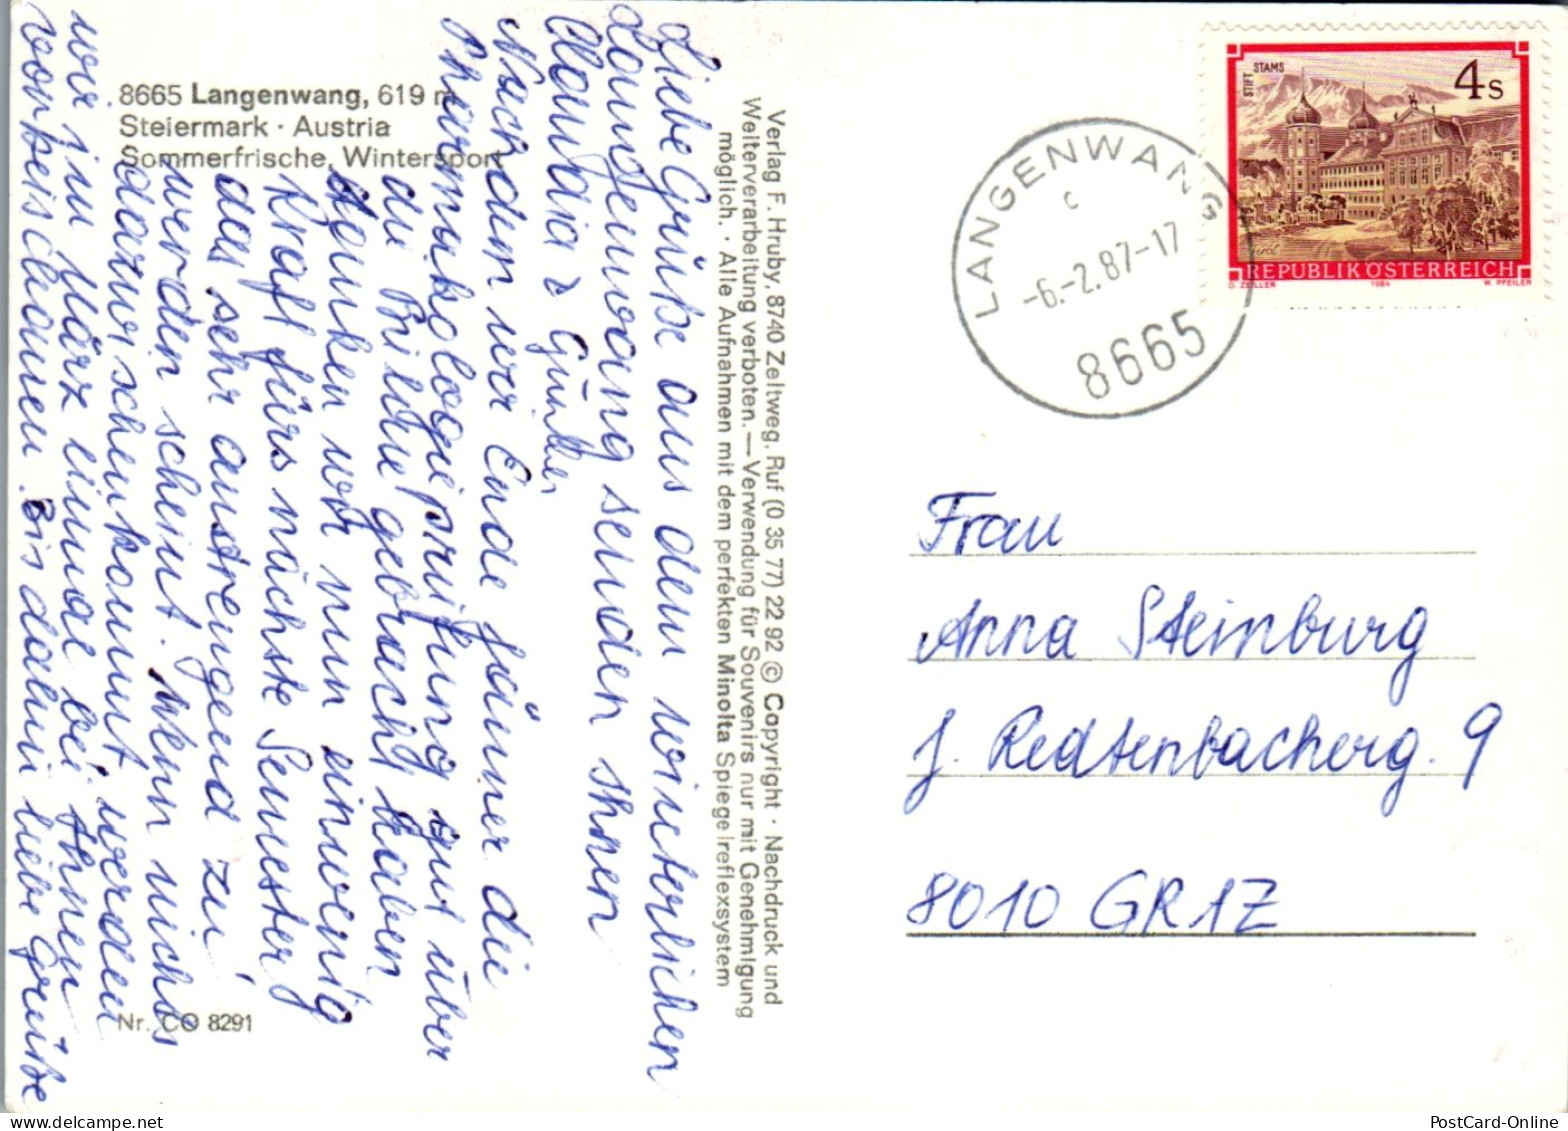 8665 Langenwang, 619 m
Steiermark · Austria
Sommerfrische, Wintersport
Liebe Grüße aus dem winterlichen
Langenwang senden Ihnen
Claudia & Günther
Nachdem wir Ende Jänner die
Pharmakologieprüfung gut über
die Bühne gebracht haben
tanken wir nun ein wenig
Kraft fürs nächste Semester
das sehr anstrengend zu
werden scheint. Wenn nichts
dazwischenkommt werden
wir im März einmal bei Ihnen
vorbeischauen. Bis dahin liebe Grüße
Nr. CO 8291
Verlag F. Hruby, 8740 Zeltweg, Ruf (0 35 77) 22 92 © Copyright · Nachdruck und
Weiterverarbeitung verboten. — Verwendung für Souvenirs nur mit Genehmigung
möglich. · Alle Aufnahmen mit dem perfekten Minolta Spiegelreflexsystem
LANGENWANG
c
-6.-2.87-17
8665
STIFT STAMS
4 S
REPUBLIK ÖSTERREICH
O. ZEILLER 1984 W. PFEILER
Frau
Anna Steinburg
J. Redtenbacherg. 9
8010 GRAZ
PostCard-Online